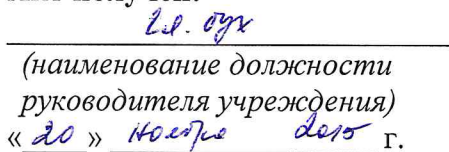 Гл. бух
(наименование должности
руководителя учреждения)
« 20 » ноября 2015 г.